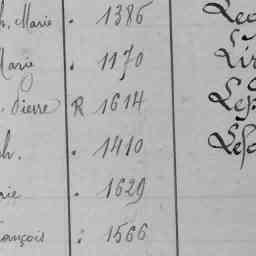 h. Marie . 1386 Lec
Marie . 1170 Lir
. Pierre R 1614 Lep
ph. . 1410 Lesc
rie . 1629
rançois . 1566